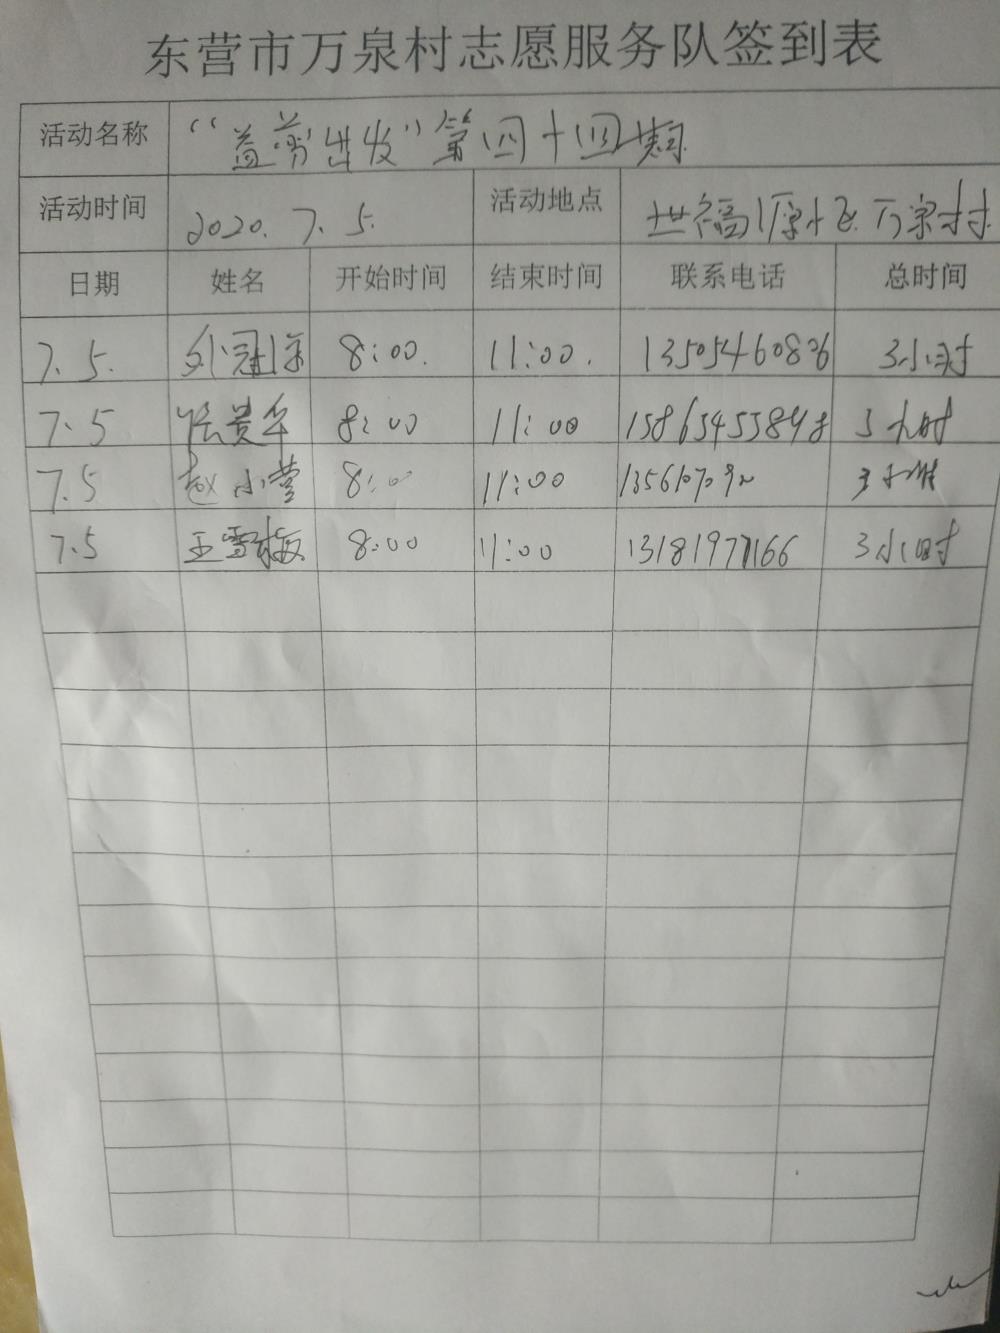 东营市万泉村志愿服务队签到表
活动名称 “益剪出发”第四十四期
活动时间 2020.7.5. 活动地点 世福 万泉村
日期 姓名 开始时间 结束时间 联系电话 总时间
7.5. 8:00. 11:00. 13505460806 3小时
7.5 张贵华 8:00 11:00 15865455848 3小时
7.5 赵小营 8:00 11:00 3小时
7.5 王雪梅 8:00 11:00 13181977166 3小时